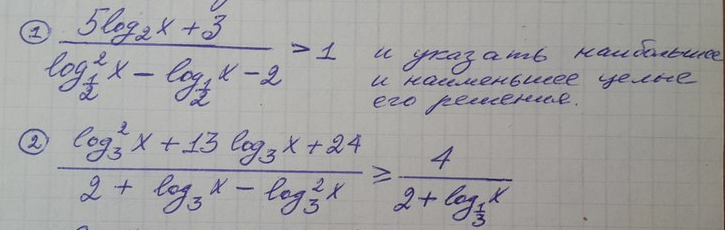 ① (5log₂x + 3)/(log²_{1/2}x − log_{1/2}x − 2) > 1 и указать наибольшее
и наименьшее целые
его решения.
② (log₃²x + 13 log₃x + 24)/(2 + log₃x − log₃²x) ≥ 4/(2 + log_{1/3}x)